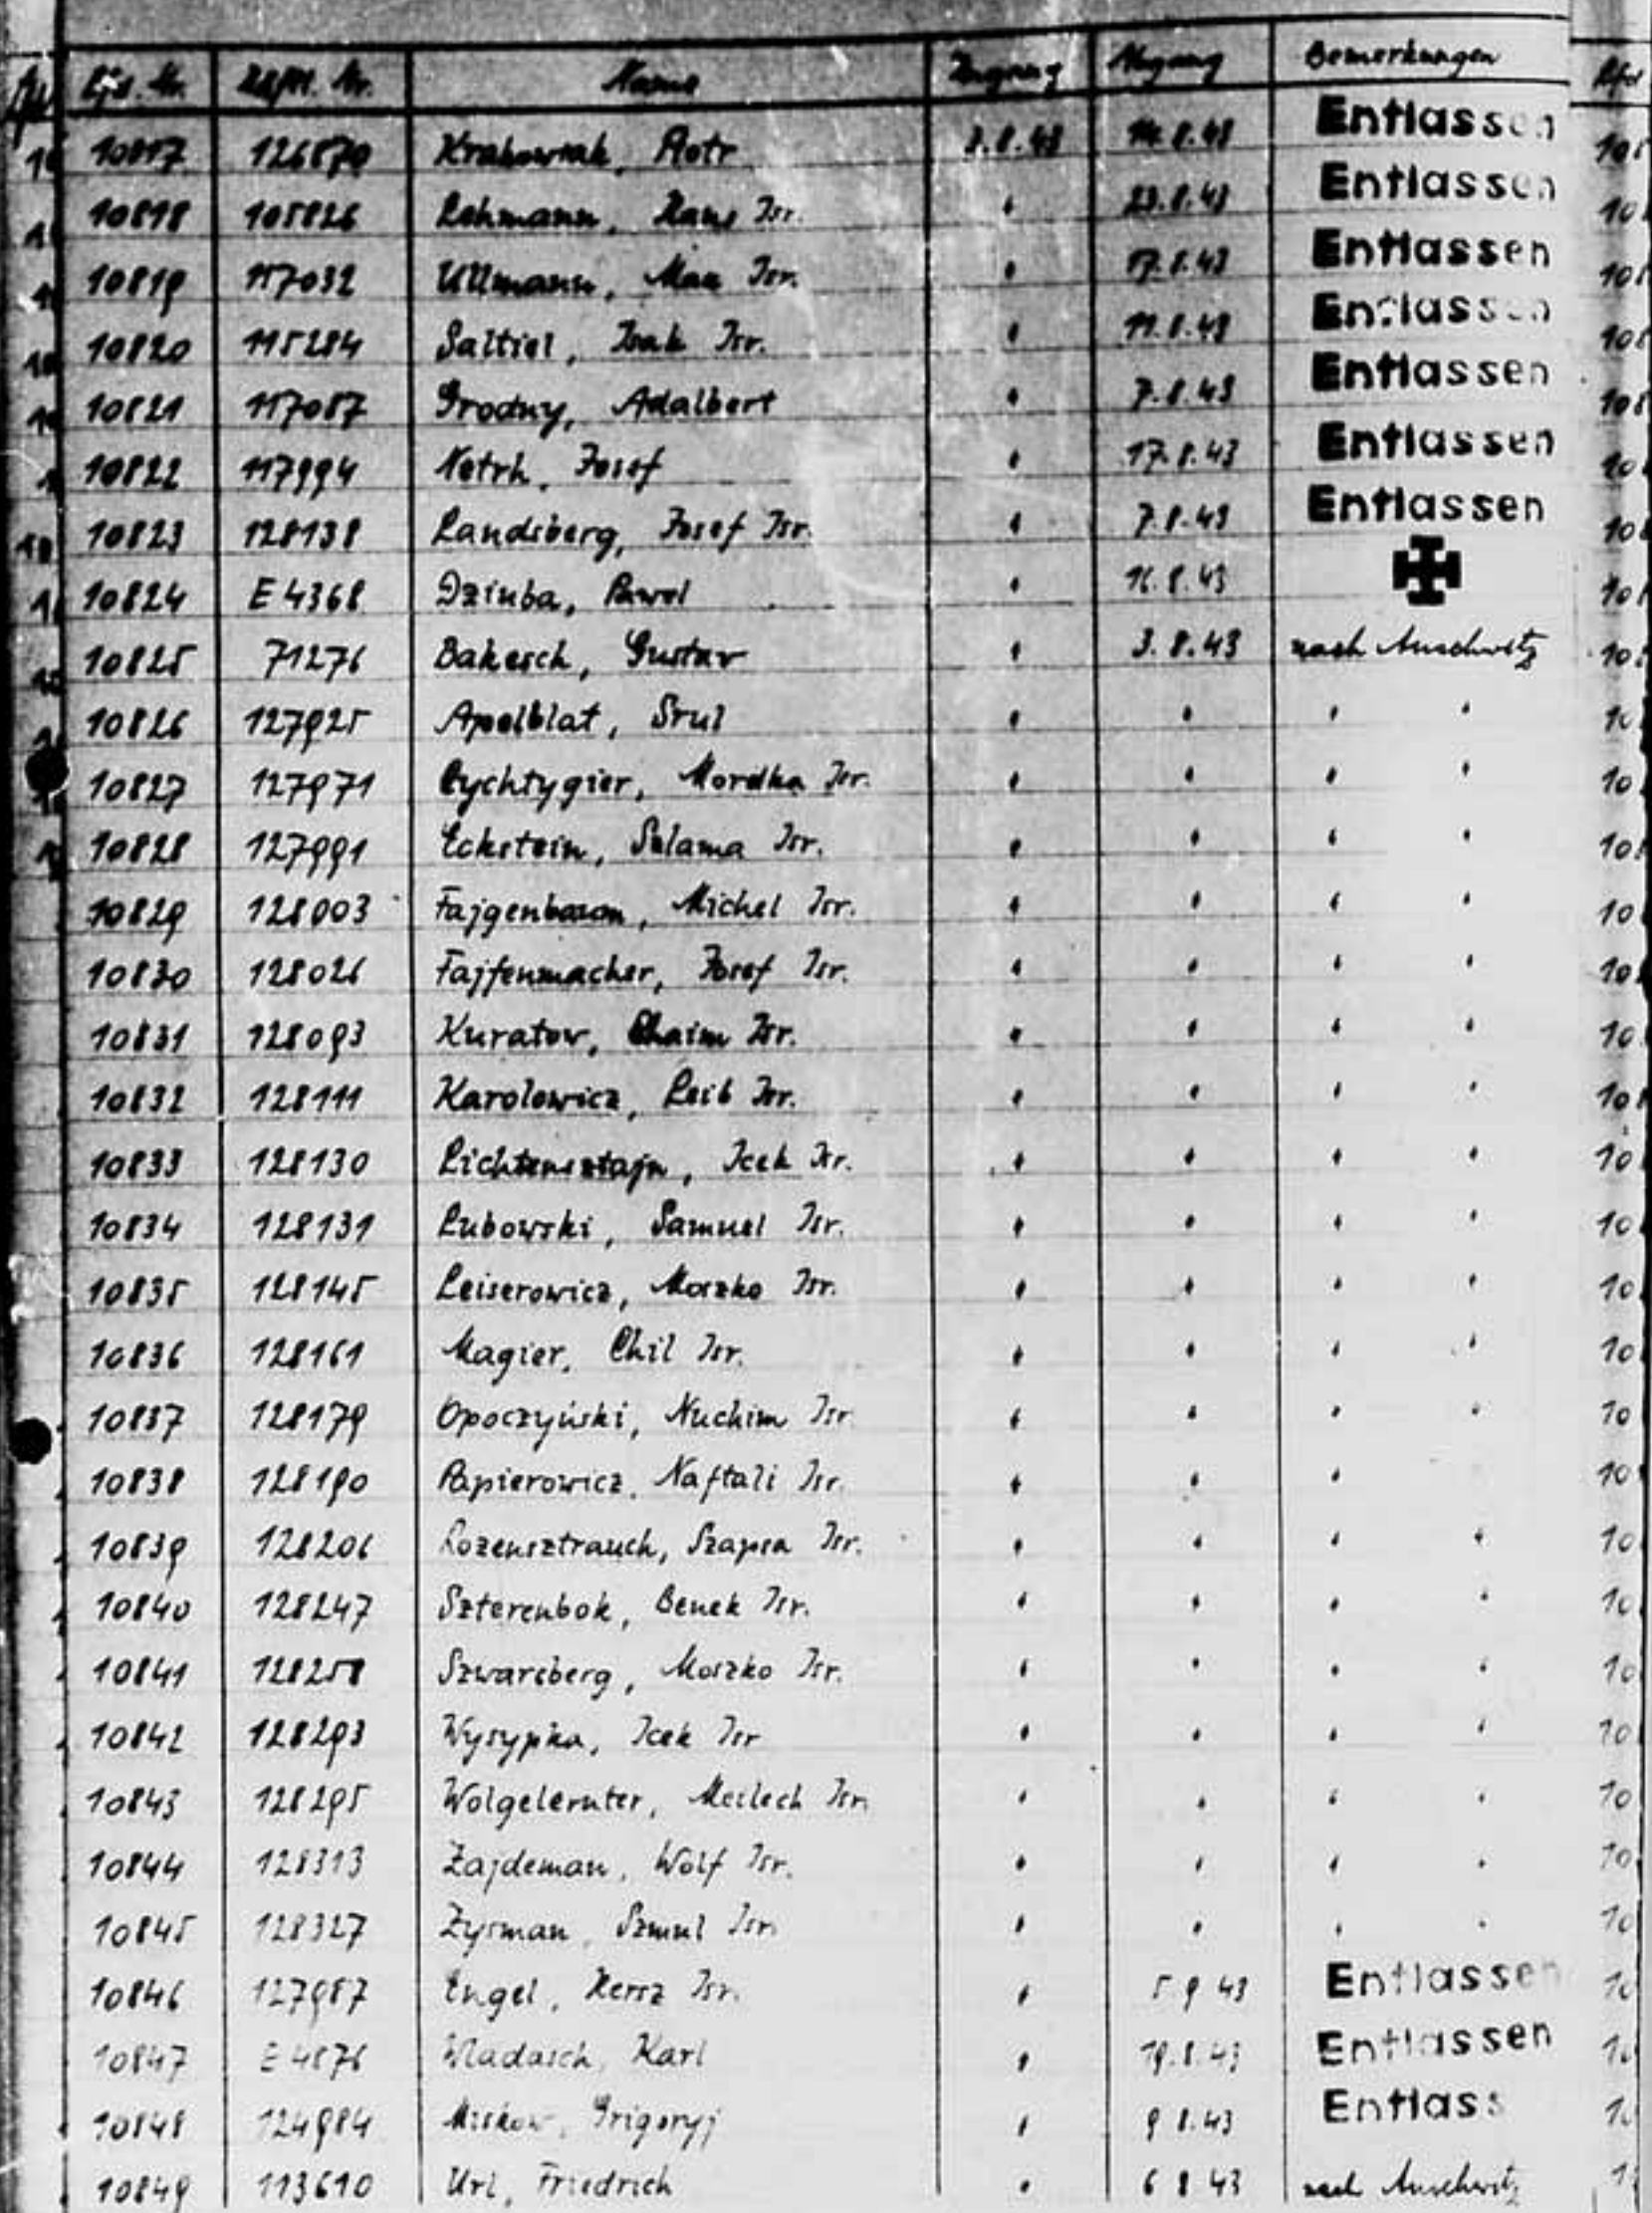 Lfd. Nr. Häftl. Nr. Name Zugang Abgang Bemerkungen
10817 126870 Krakowiak, Piotr 3.8.43 14.8.43 Entlassen
10818 105826 Lehmann, Hans Isr. " 23.8.43 Entlassen
10819 117032 Ullmann, Max Isr. " 17.8.43 Entlassen
10820 115284 Saltiel, Isak Isr. " 11.8.43 Entlassen
10821 117087 Grodny, Adalbert " 7.8.43 Entlassen
10822 117994 Netrh, Josef " 17.8.43 Entlassen
10823 128138 Landsberg, Josef Isr. " 7.8.43 Entlassen
10824 E 4368 Dziuba, Pawel " 16.8.43
10825 71276 Bakesch, Gustav " 3.8.43 nach Auschwitz
10826 127925 Apelblat, Srul " " " "
10827 127971 Cychtygier, Mordka Isr. " " " "
10828 127991 Eckstein, Salama Isr. " " " "
10829 128003 Fajgenbaum, Michel Isr. " " " "
10830 128026 Fajfenmacher, Josef Isr. " " " "
10831 128093 Kuratow, Chaim Isr. " " " "
10832 128111 Karolowicz, Leib Isr. " " " "
10833 128130 Lichtensztajn, Icek Isr. " " " "
10834 128131 Lubowski, Samuel Isr. " " " "
10835 128145 Leiserowicz, Moszko Isr. " " " "
10836 128161 Magier, Chil Isr. " " " "
10837 128179 Opoczyński, Nuchim Isr. " " " "
10838 128190 Papierowicz, Naftali Isr. " " "
10839 128206 Rozensztrauch, Szapsa Isr. " " " "
10840 128247 Szterenbok, Benek Isr. " " " "
10841 128258 Szwarcberg, Moszko Isr. " " " "
10842 128293 Wysypka, Icek Isr " " " "
10843 128295 Wolgelernter, Meilech Isr. " " " "
10844 128313 Zajdeman, Wolf Isr. " " " "
10845 128327 Zysman, Szmul Isr. " " " "
10846 127987 Engel, Hersz Isr. " 5 9 43 Entlassen
10847 E 4876 Wladasch, Karl " 19.8.43 Entlassen
10848 124984 Grigoryj " 9 8.43 Entlass
10849 113610 Url, Friedrich " 6 8 43 nach Auschwitz